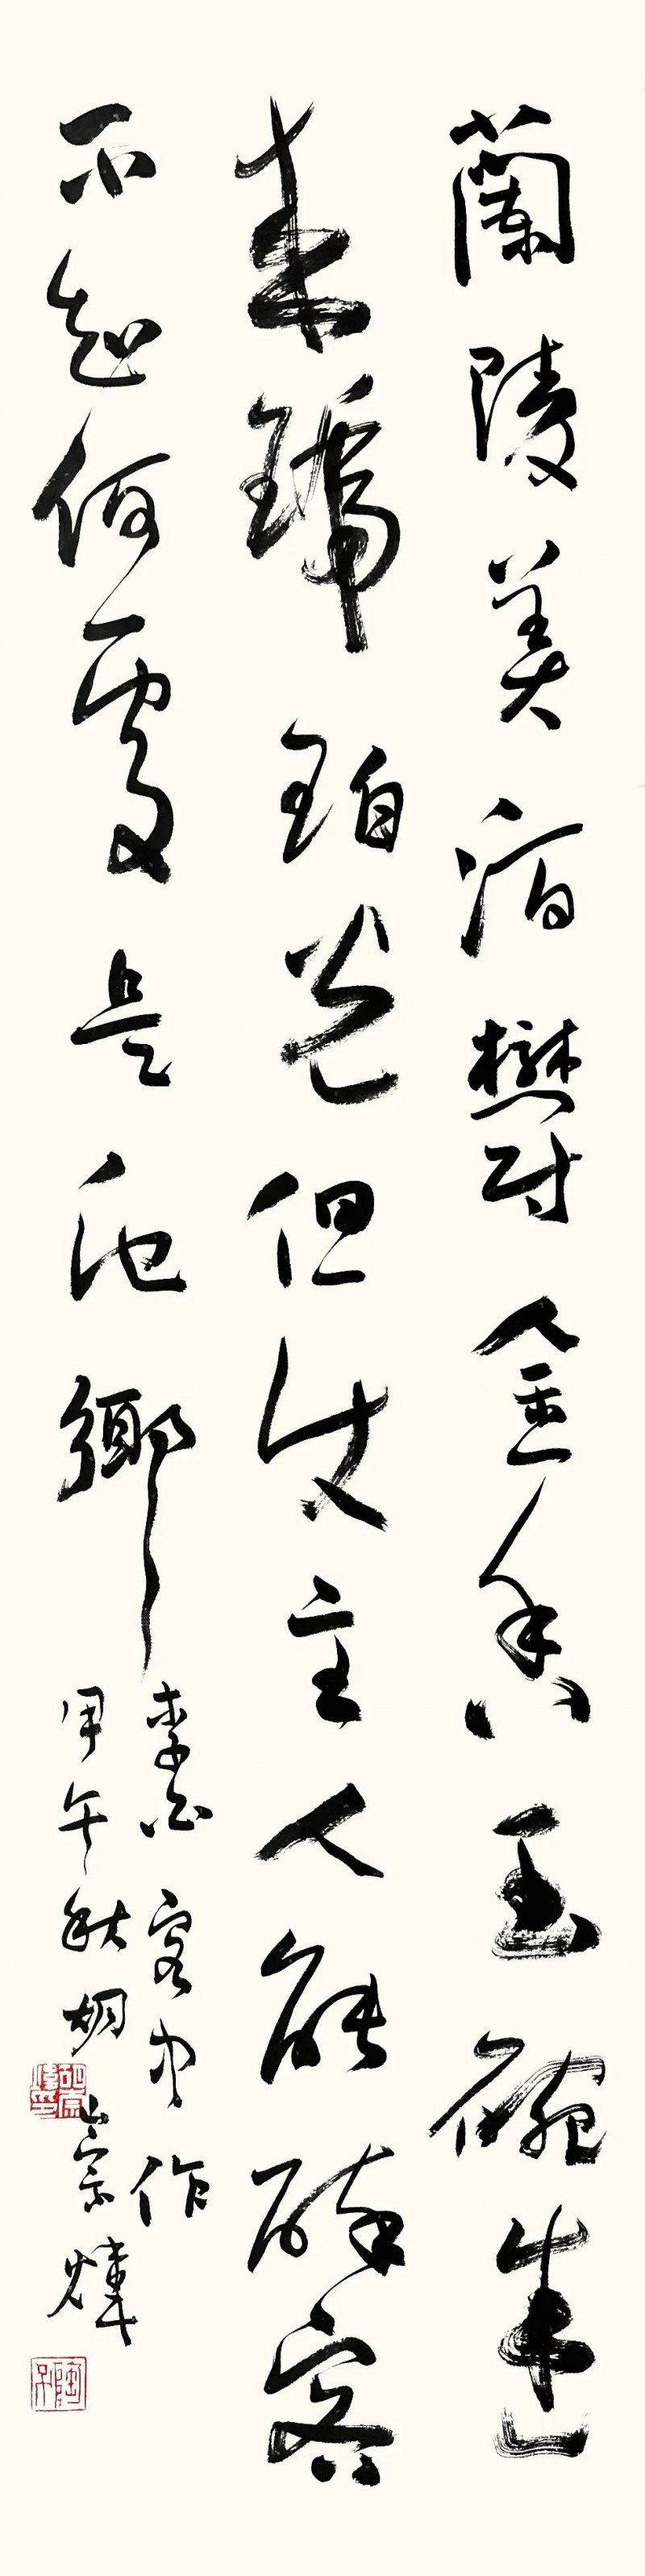 蘭陵美酒鬱金香玉碗盛
来琥珀光但使主人能醉客
不知何處是他鄉
李白客中作
甲午秋胡崇煒